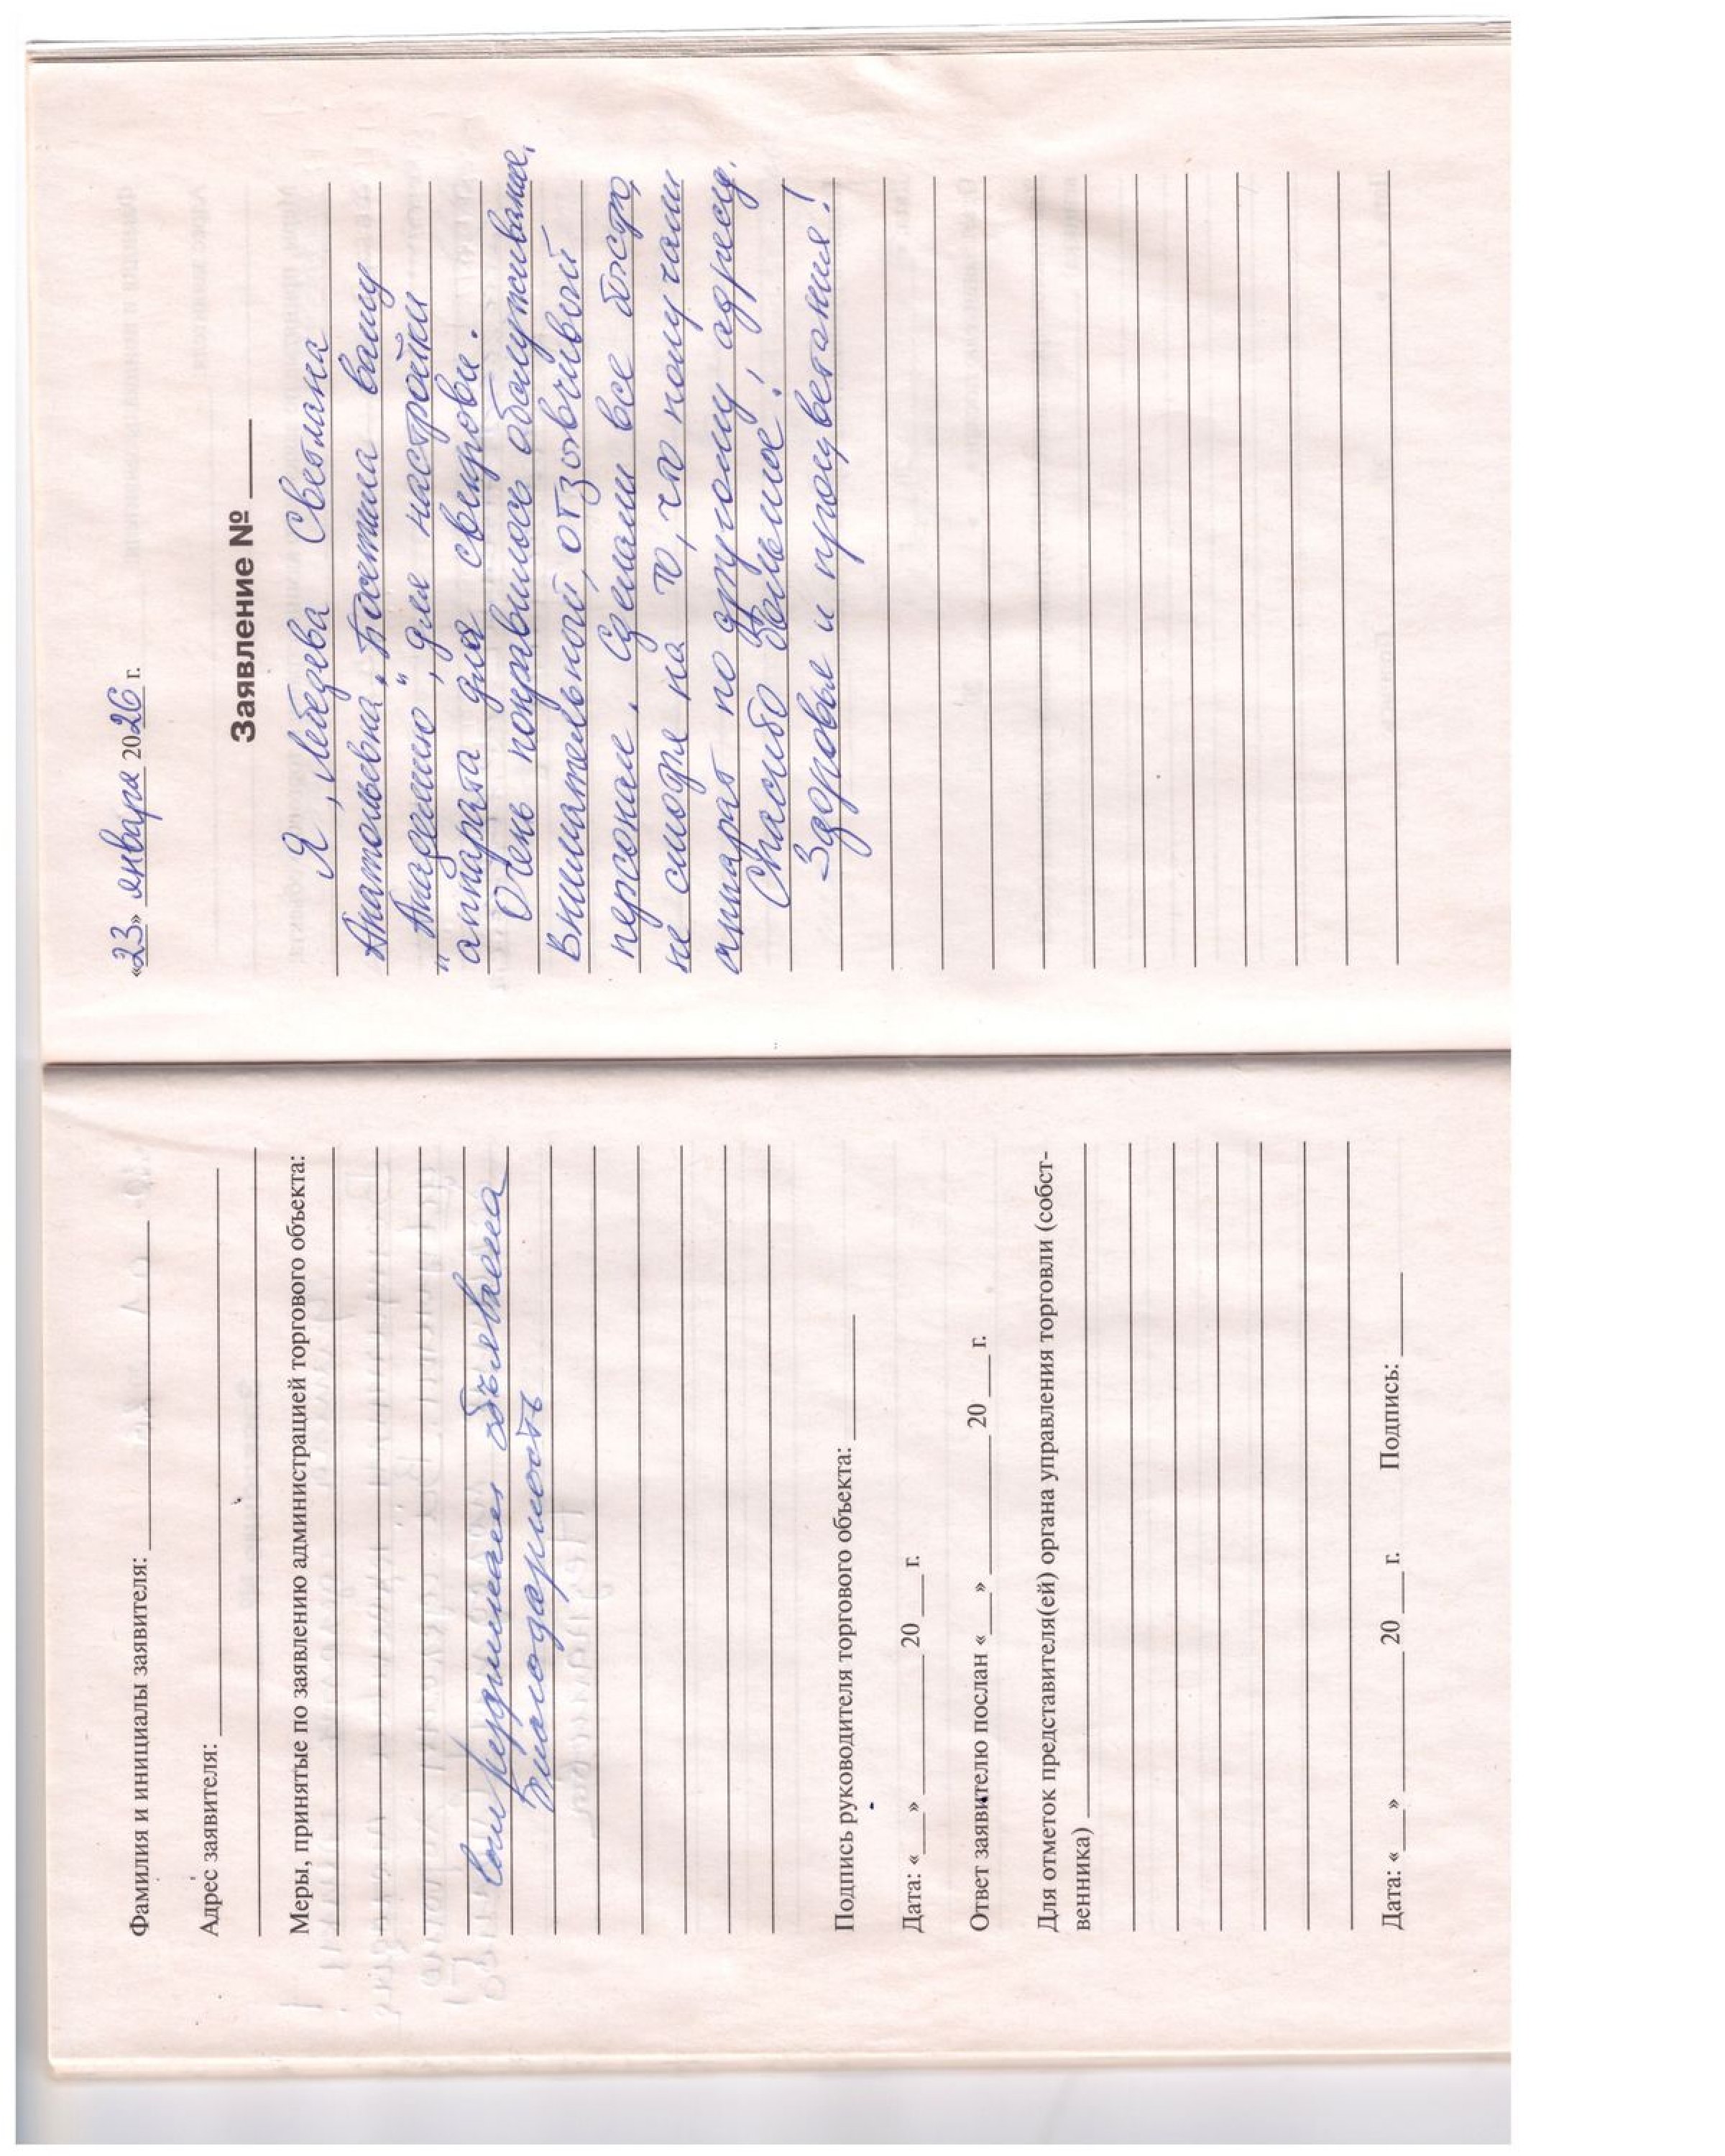 Фамилия и инициалы заявителя:
Адрес заявителя:
Меры, принятые по заявлению администрацией торгового объекта:
Сотрудникам объявлена
благодарность
Подпись руководителя торгового объекта:
Дата: «___» ________ 20 ___ г.
Ответ заявителю послан «___» ________ 20 ___ г.
Для отметок представителя(ей) органа управления торговли (собст-
венника)
Дата: «___» ________ 20 ___ г. Подпись: ______
«23» января 2026 г.
Заявление № ____
Я, Лебедева Светлана
Анатольевна, Посетила вашу
"Академию", для настройки
аппарата для свекрови.
Очень понравилось обслуживание,
внимательный, отзывчивый
персонал. Сделали все быстро,
не смотря на то, что получали
аппарат по другому адресу.
Спасибо большое!
Здоровья и процветания!